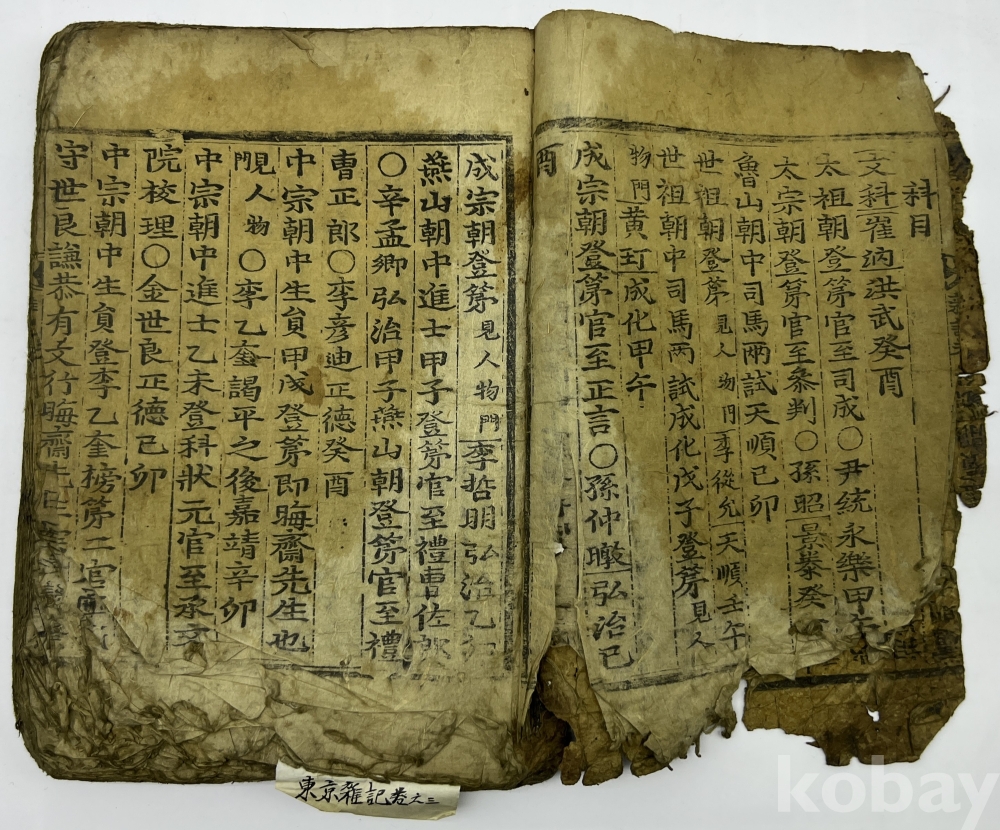 科目
文科崔汭洪武癸酉
太祖朝登第官至司成○尹統永樂甲午
太宗朝登第官至叅判○孫昭景泰癸
魯山朝中司馬兩試天順己卯
世祖朝登第見人物門李從允天順壬午
世祖朝中司馬兩試成化戊子登第見人
物門黄玎成化甲午
成宗朝登第官至正言○孫仲暾弘治己
酉
成宗朝登第見人物門李哲明弘治乙
燕山朝中進士甲子登第官至禮曹佐郎
○辛孟卿弘治甲子燕山朝登第官至禮
曹正郎○李彦迪正德癸酉
中宗朝中生員甲戌登第即晦齋先生也
見人物門○李乙奎謁平之後嘉靖辛卯
中宗朝中進士乙未登科狀元官至承文
院校理○金世良正德己卯
中宗朝中生員登李乙奎榜第二官至
守世良謙恭有文行晦齋先生
東京雜記卷之三
kobay